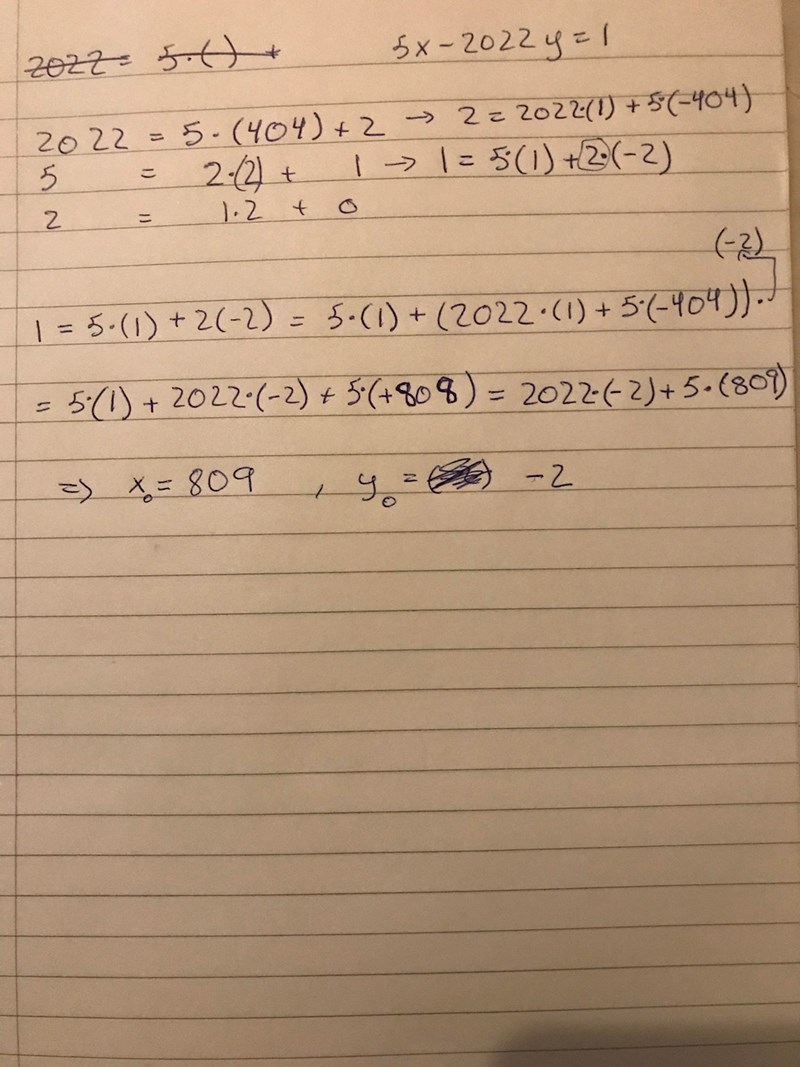 2022 = 5·( ) + 5x - 2022y = 1
2022 = 5·(404) + 2 → 2 = 2022·(1) + 5·(-404)
5 = 2·(2) + 1 → 1 = 5·(1) + 2·(-2)
2 = 1·2 + 0
(-2)
1 = 5·(1) + 2(-2) = 5·(1) + (2022·(1) + 5·(-404))·
= 5·(1) + 2022·(-2) + 5·(+808) = 2022·(-2) + 5·(809)
⇒ x₀ = 809 , y₀ = -2